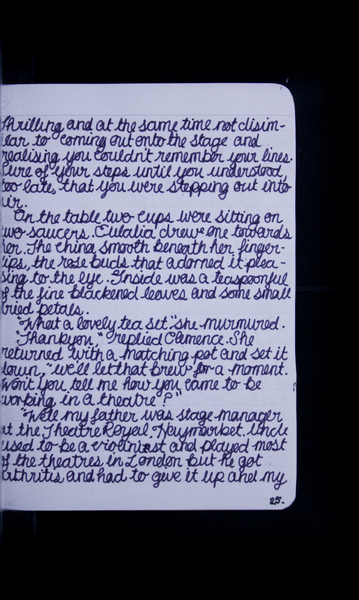 thrilling and at the same time not disim-
ilar to coming out onto the stage and
realising you couldn't remember your lines.
Sure of your steps until you understood,
too late, that you were stepping out into
air.
On the table two cups were sitting on
two saucers. Eulalia drew one towards
her. The china smooth beneath her finger-
tips, the rose buds that adorned it plea-
sing to the eye. Inside was a teaspoonful
of the fine blackened leaves and some small
dried petals.
"What a lovely tea set." she murmured.
"Thankyou," replied Clemence. She
returned with a matching pot and set it
down, "we'll let that brew for a moment.
Won't you tell me how you came to be
working in a theatre?"
"Well my father was stage manager
at the Theatre Royal, Haymarket. Uncle
used to be a violinist and played most
of the theatres in London but he got
arthritis and had to give it up and my
25.